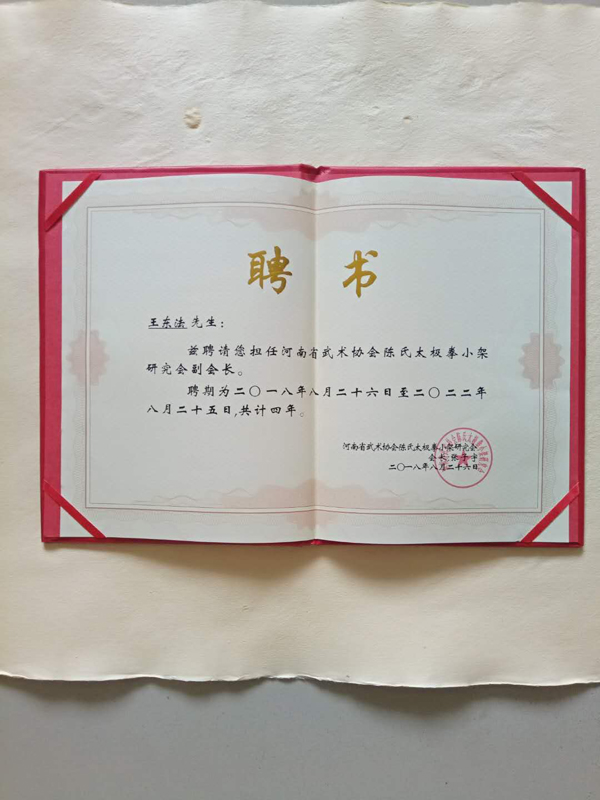 聘 书
王东法 先生:
兹聘请您担任河南省武术协会陈氏太极拳小架
研究会副会长。
聘期为二〇一八年八月二十六日至二〇二二年
八月二十五日,共计四年。
河南省武术协会陈氏太极拳小架研究会
会长:张
二〇一八年八月二十六日